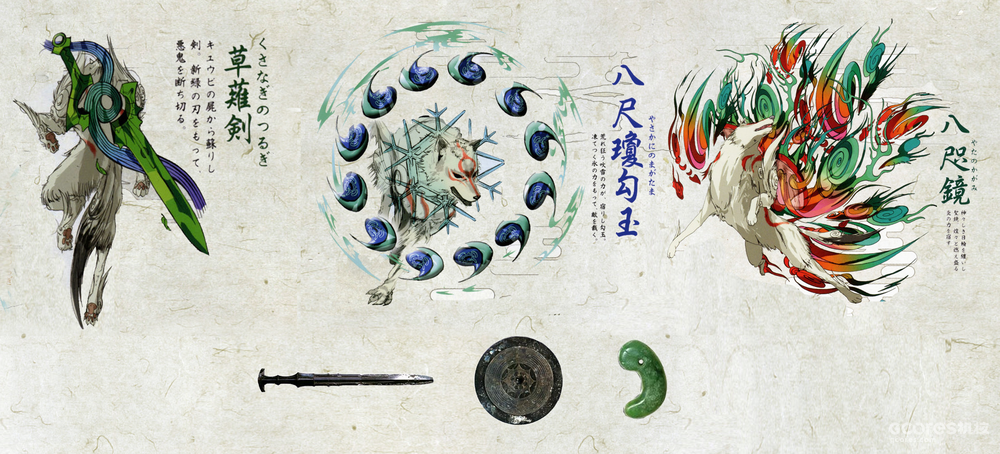 くさなぎのつるぎ
草薙剣
キュウビの屍から蘇りし
剣。新緑の刃をもって、
悪鬼を断ち切る。
やさかにのまがたま
八尺瓊勾玉
荒れ狂う吹雪の力が、宿りし勾玉。
凍てつく氷の力をもって、敵を裁く。
やたのかがみ
八咫鏡
神々しき日輪を纏いし
聖鏡。煌々と燃え盛る
炎の力を宿す。
Gcores机核